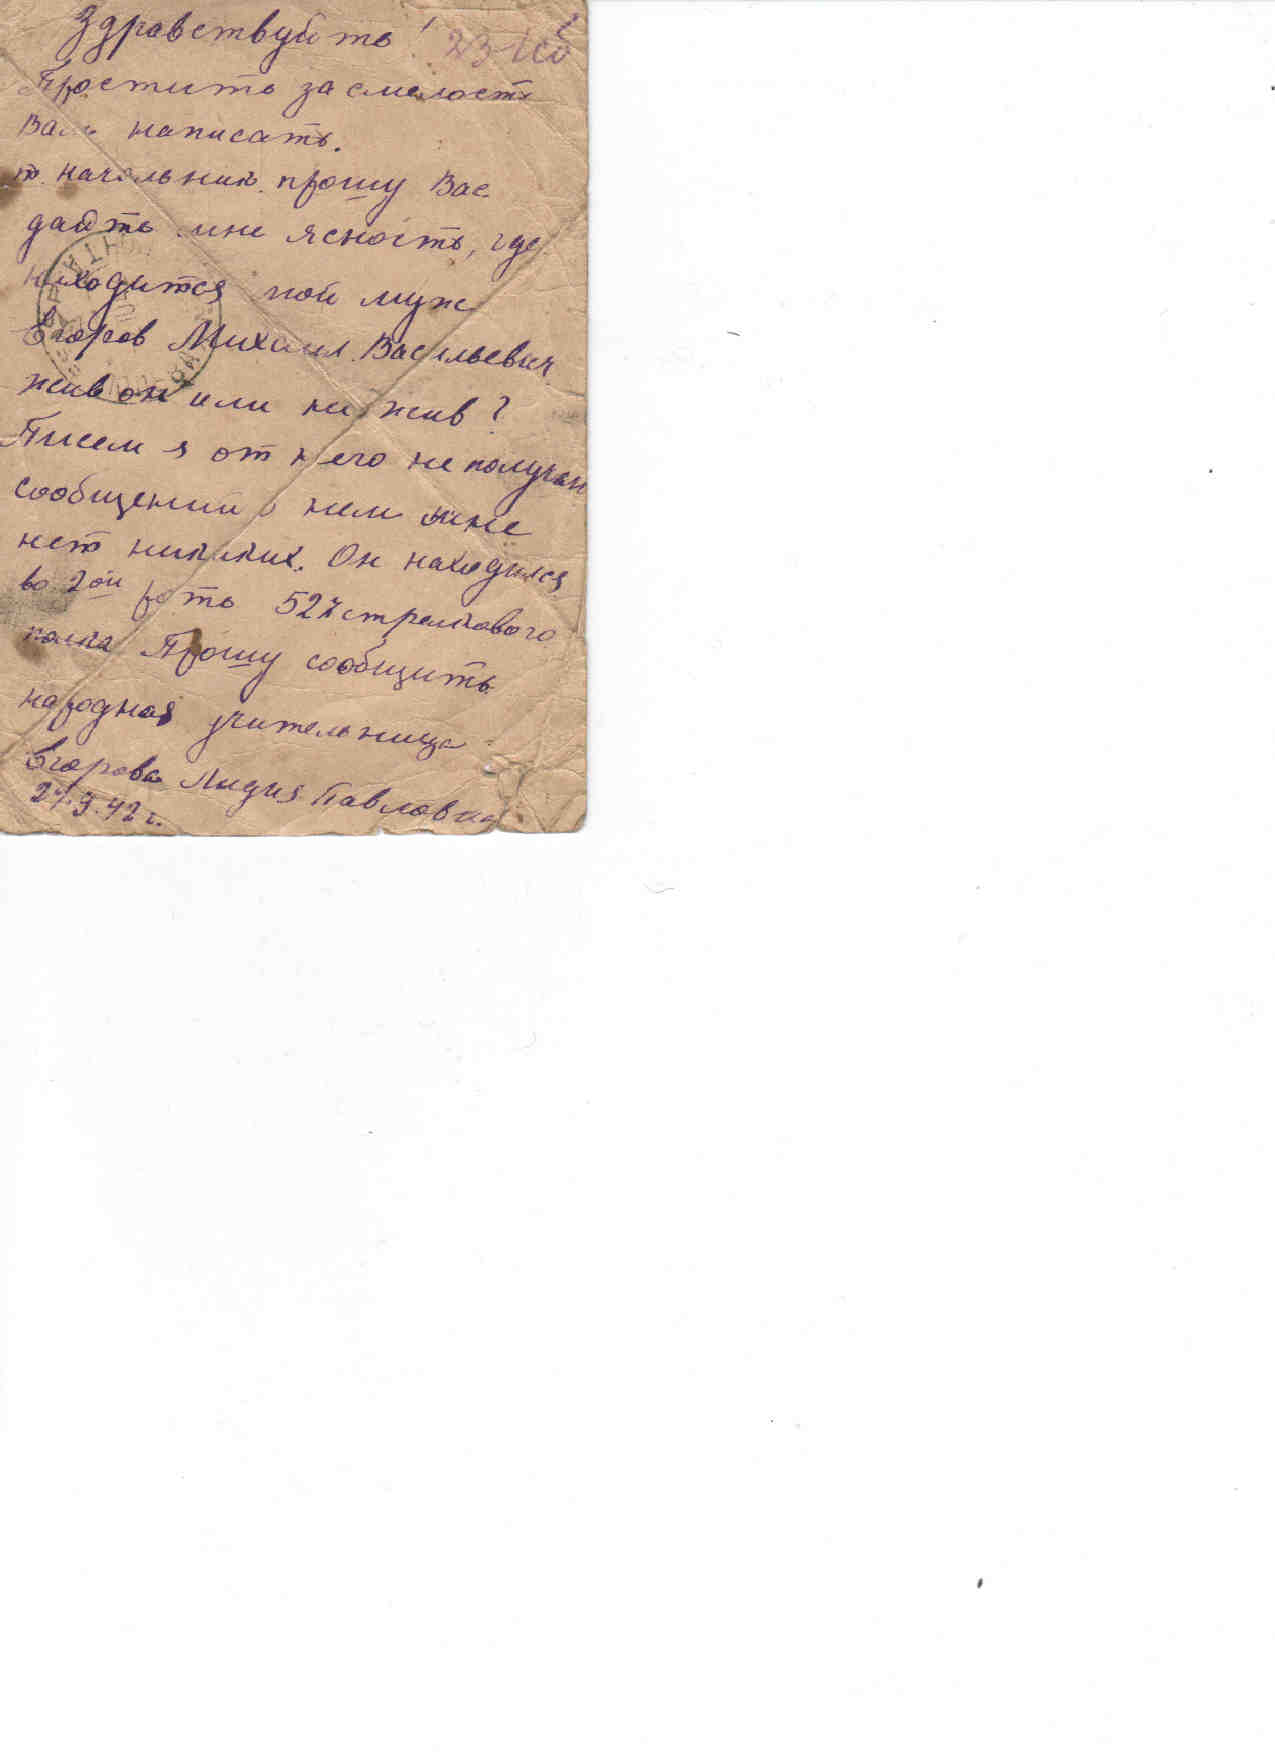 Здравствуйть!
Простить за смелость
Вам написать.
т. начальник. прошу Вас
дайть мне ясность, где
находится мой муж
Егоров Михаил Васильевич
жив он или не жив?
Писем я от него не получаю
сообщений о нем мне
нет никаких. Он находился
во 2ой роть 527 стрелкового
полка Прошу сообщить
народная учительница
Егорова Лидия Павловна
27.9.42 г.